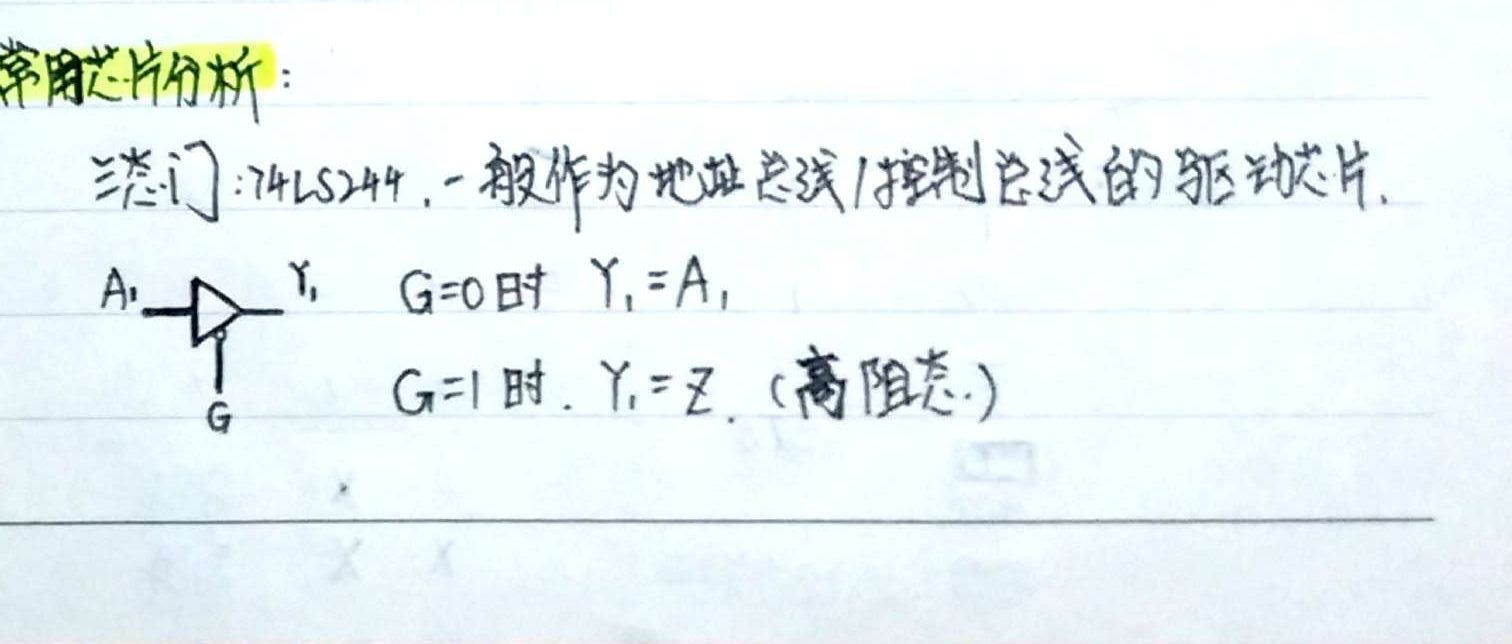 常用芯片分析:
三态门:74LS244.一般作为地址总线/控制总线的驱动芯片.
A₁ Y₁ G=0时 Y₁=A₁
G=1时. Y₁=Z.(高阻态.)
G